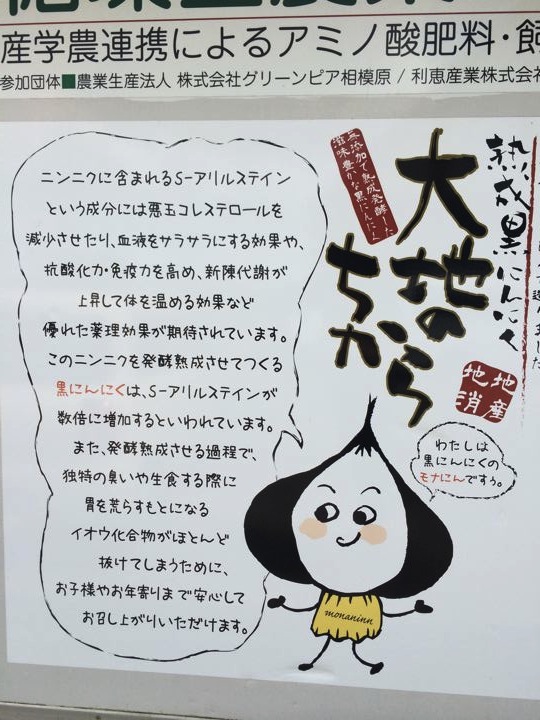 産学農連携によるアミノ酸肥料・飼
参加団体■農業生産法人 株式会社グリーンピア相模原 / 利恵産業株式会社
熟成黒にんにく
大地のちから
無添加で熟成発酵した
滋味豊かな黒にんにく
地産
地消
ニンニクに含まれるS-アリルステイン
という成分には悪玉コレステロールを
減少させたり、血液をサラサラにする効果や、
抗酸化力・免疫力を高め、新陳代謝が
上昇して体を温める効果など
優れた薬理効果が期待されています。
このニンニクを発酵熟成させてつくる
黒にんにくは、S-アリルステインが
数倍に増加するといわれています。
また、発酵熟成させる過程で、
独特の臭いや生食する際に
胃を荒らすもとになる
イオウ化合物がほとんど
抜けてしまうために、
お子様やお年寄りまで安心して
お召し上がりいただけます。
わたしは
黒にんにくの
モナにんですぅ。
monaninn